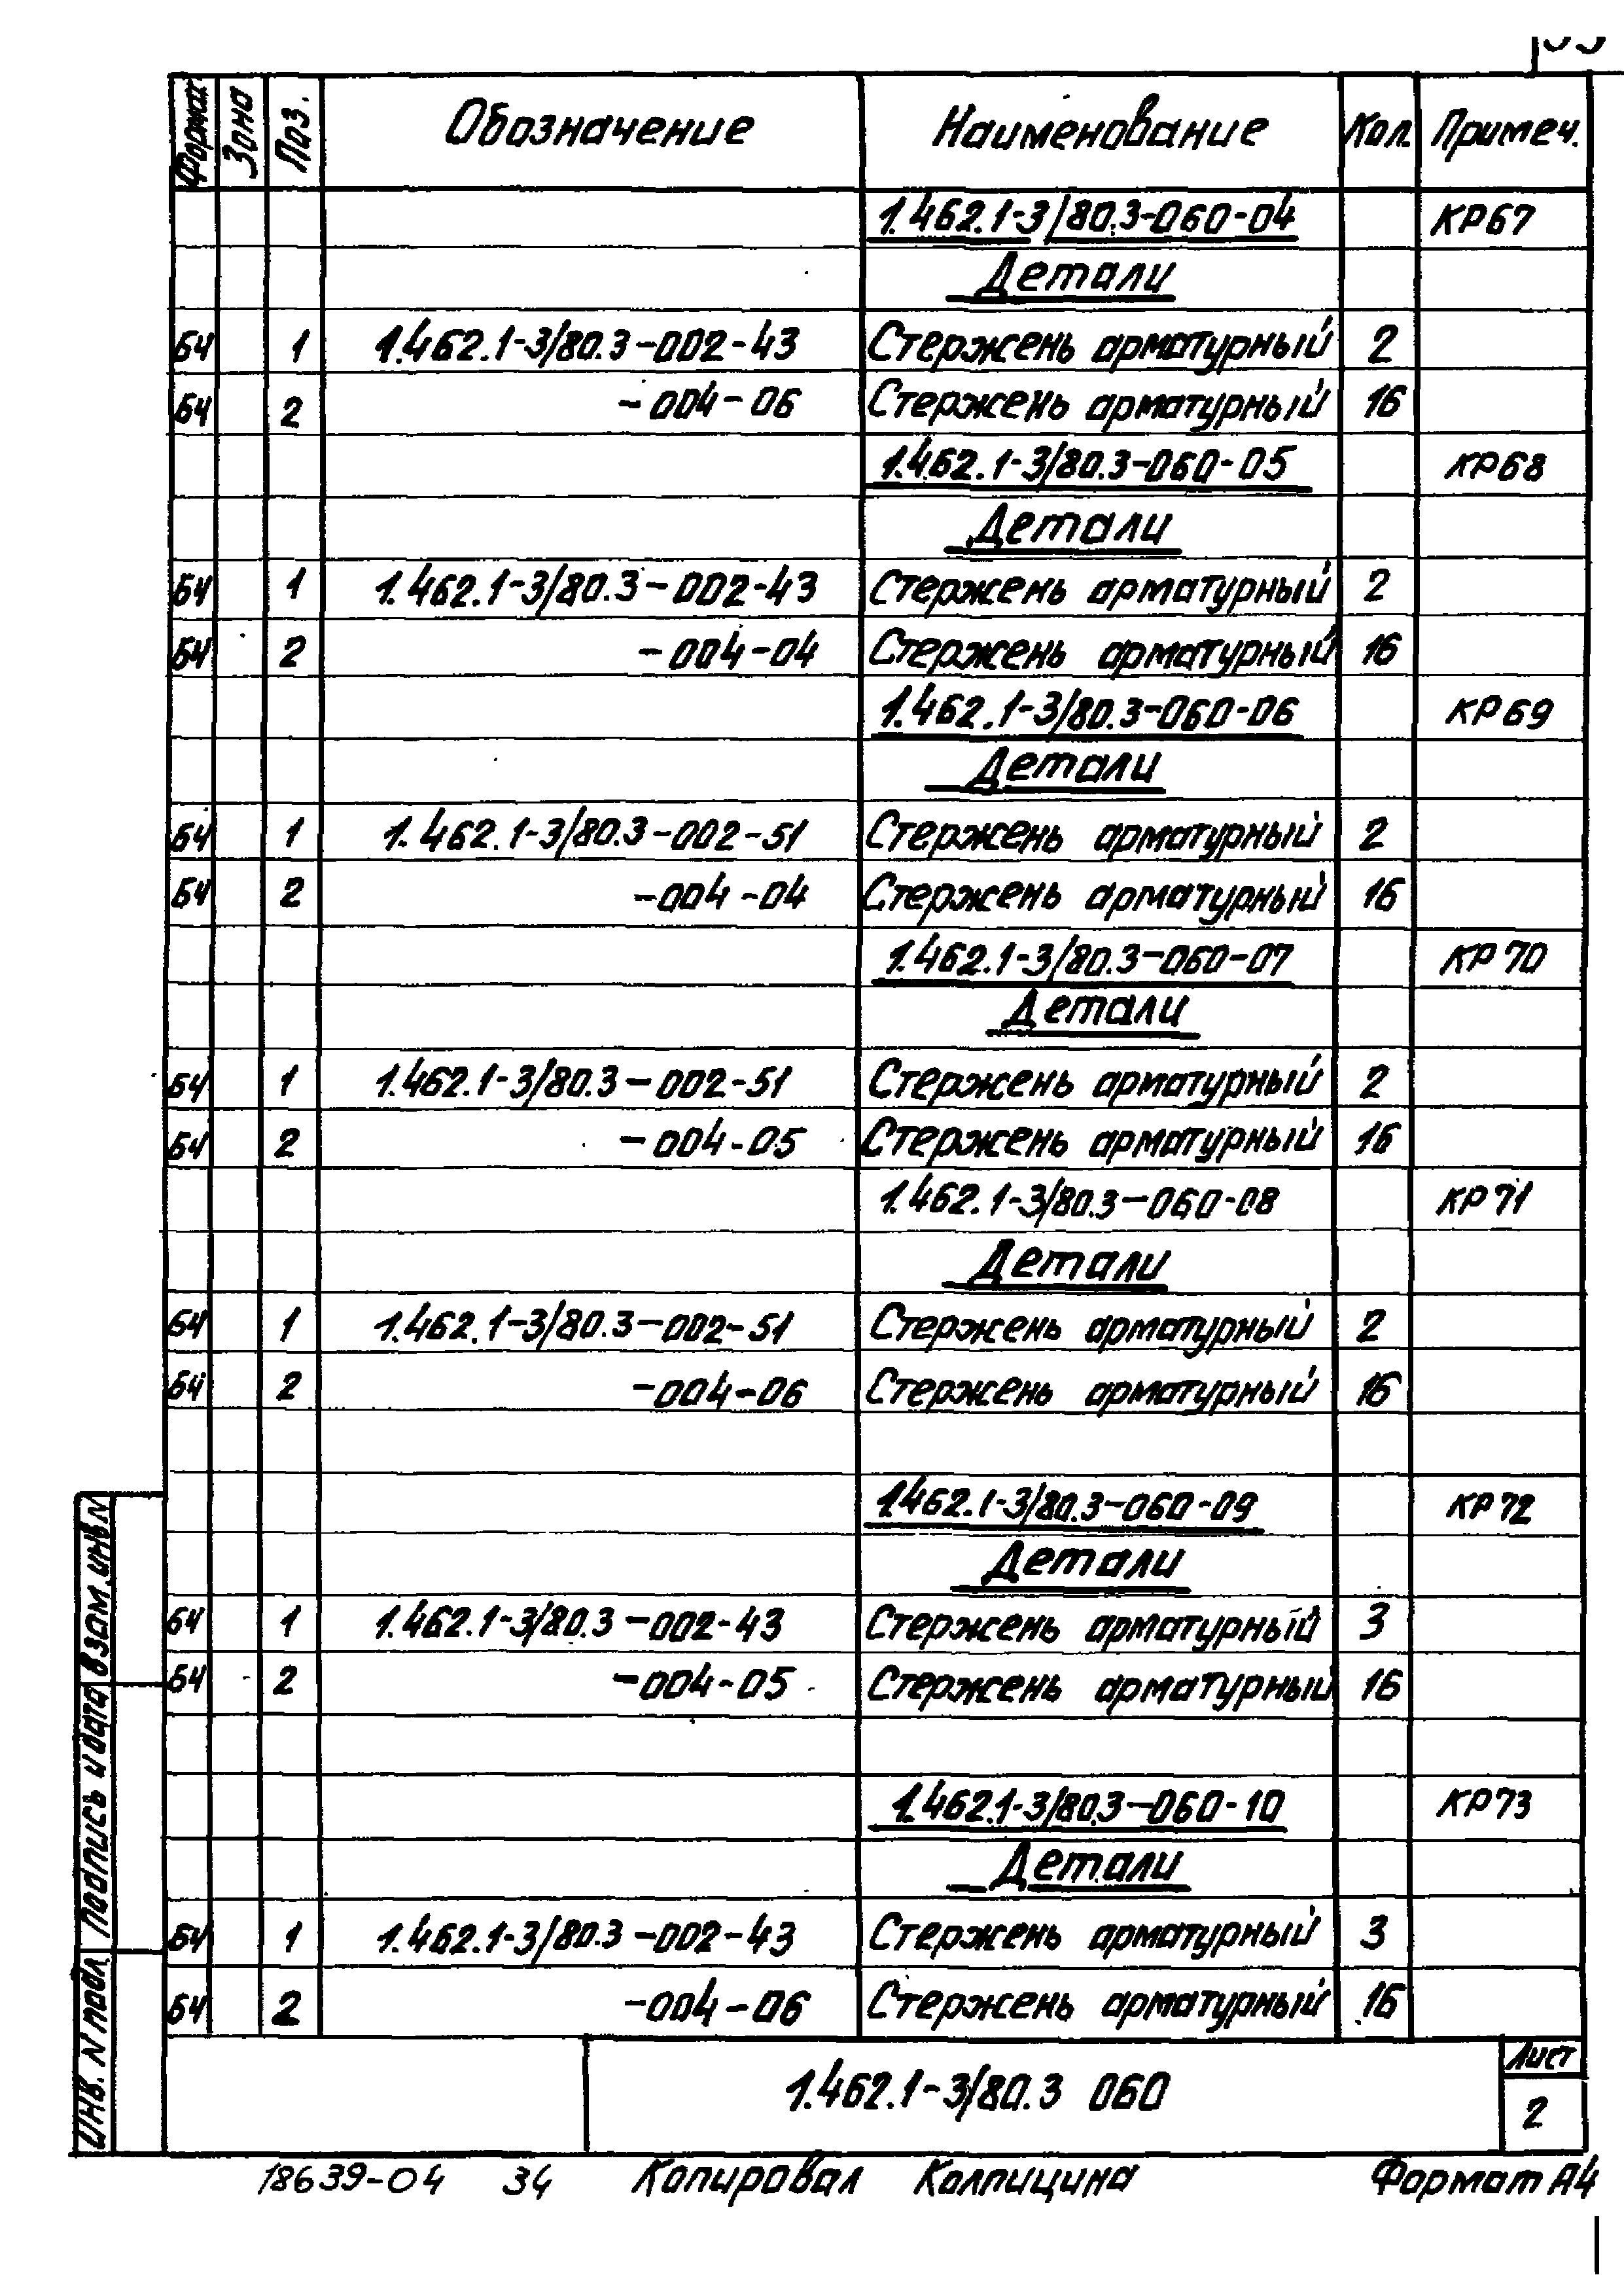 Формат Зона Поз. Обозначение Наименование Кол. Примеч.
1.462.1-3/80.3-060-04 КР67
Детали
БЧ 1 1.462.1-3/80.3-002-43 Стержень арматурный 2
БЧ 2 -004-06 Стержень арматурный 16
1.462.1-3/80.3-060-05 КР68
Детали
БЧ 1 1.462.1-3/80.3-002-43 Стержень арматурный 2
БЧ 2 -004-04 Стержень арматурный 16
1.462.1-3/80.3-060-06 КР69
Детали
БЧ 1 1.462.1-3/80.3-002-51 Стержень арматурный 2
БЧ 2 -004-04 Стержень арматурный 16
1.462.1-3/80.3-060-07 КР70
Детали
БЧ 1 1.462.1-3/80.3-002-51 Стержень арматурный 2
БЧ 2 -004-05 Стержень арматурный 16
1.462.1-3/80.3-060-08 КР71
Детали
БЧ 1 1.462.1-3/80.3-002-51 Стержень арматурный 2
БЧ 2 -004-06 Стержень арматурный 16
1.462.1-3/80.3-060-09 КР72
Детали
БЧ 1 1.462.1-3/80.3-002-43 Стержень арматурный 3
БЧ 2 -004-05 Стержень арматурный 16
1.462.1-3/80.3-060-10 КР73
Детали
БЧ 1 1.462.1-3/80.3-002-43 Стержень арматурный 3
БЧ 2 -004-06 Стержень арматурный 16
Взам.инв N
Подпись и дата
Инв. N подл
1.462.1-3/80.3 060
Лист
2
18639-04 34 Копировал Колпицина Формат А4